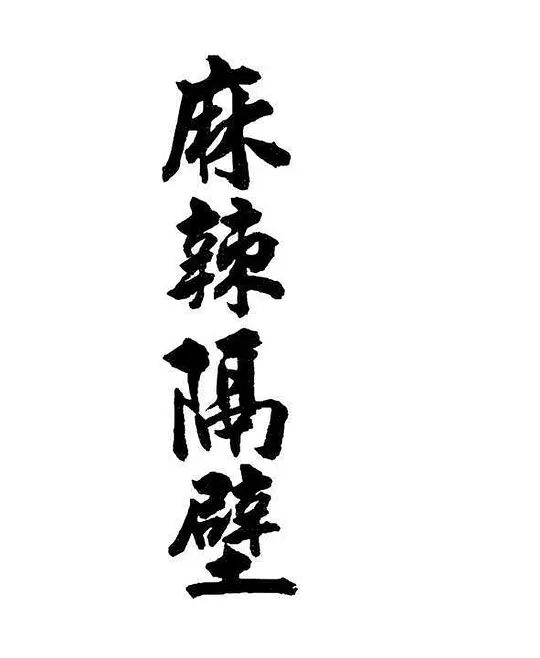 麻辣隔壁